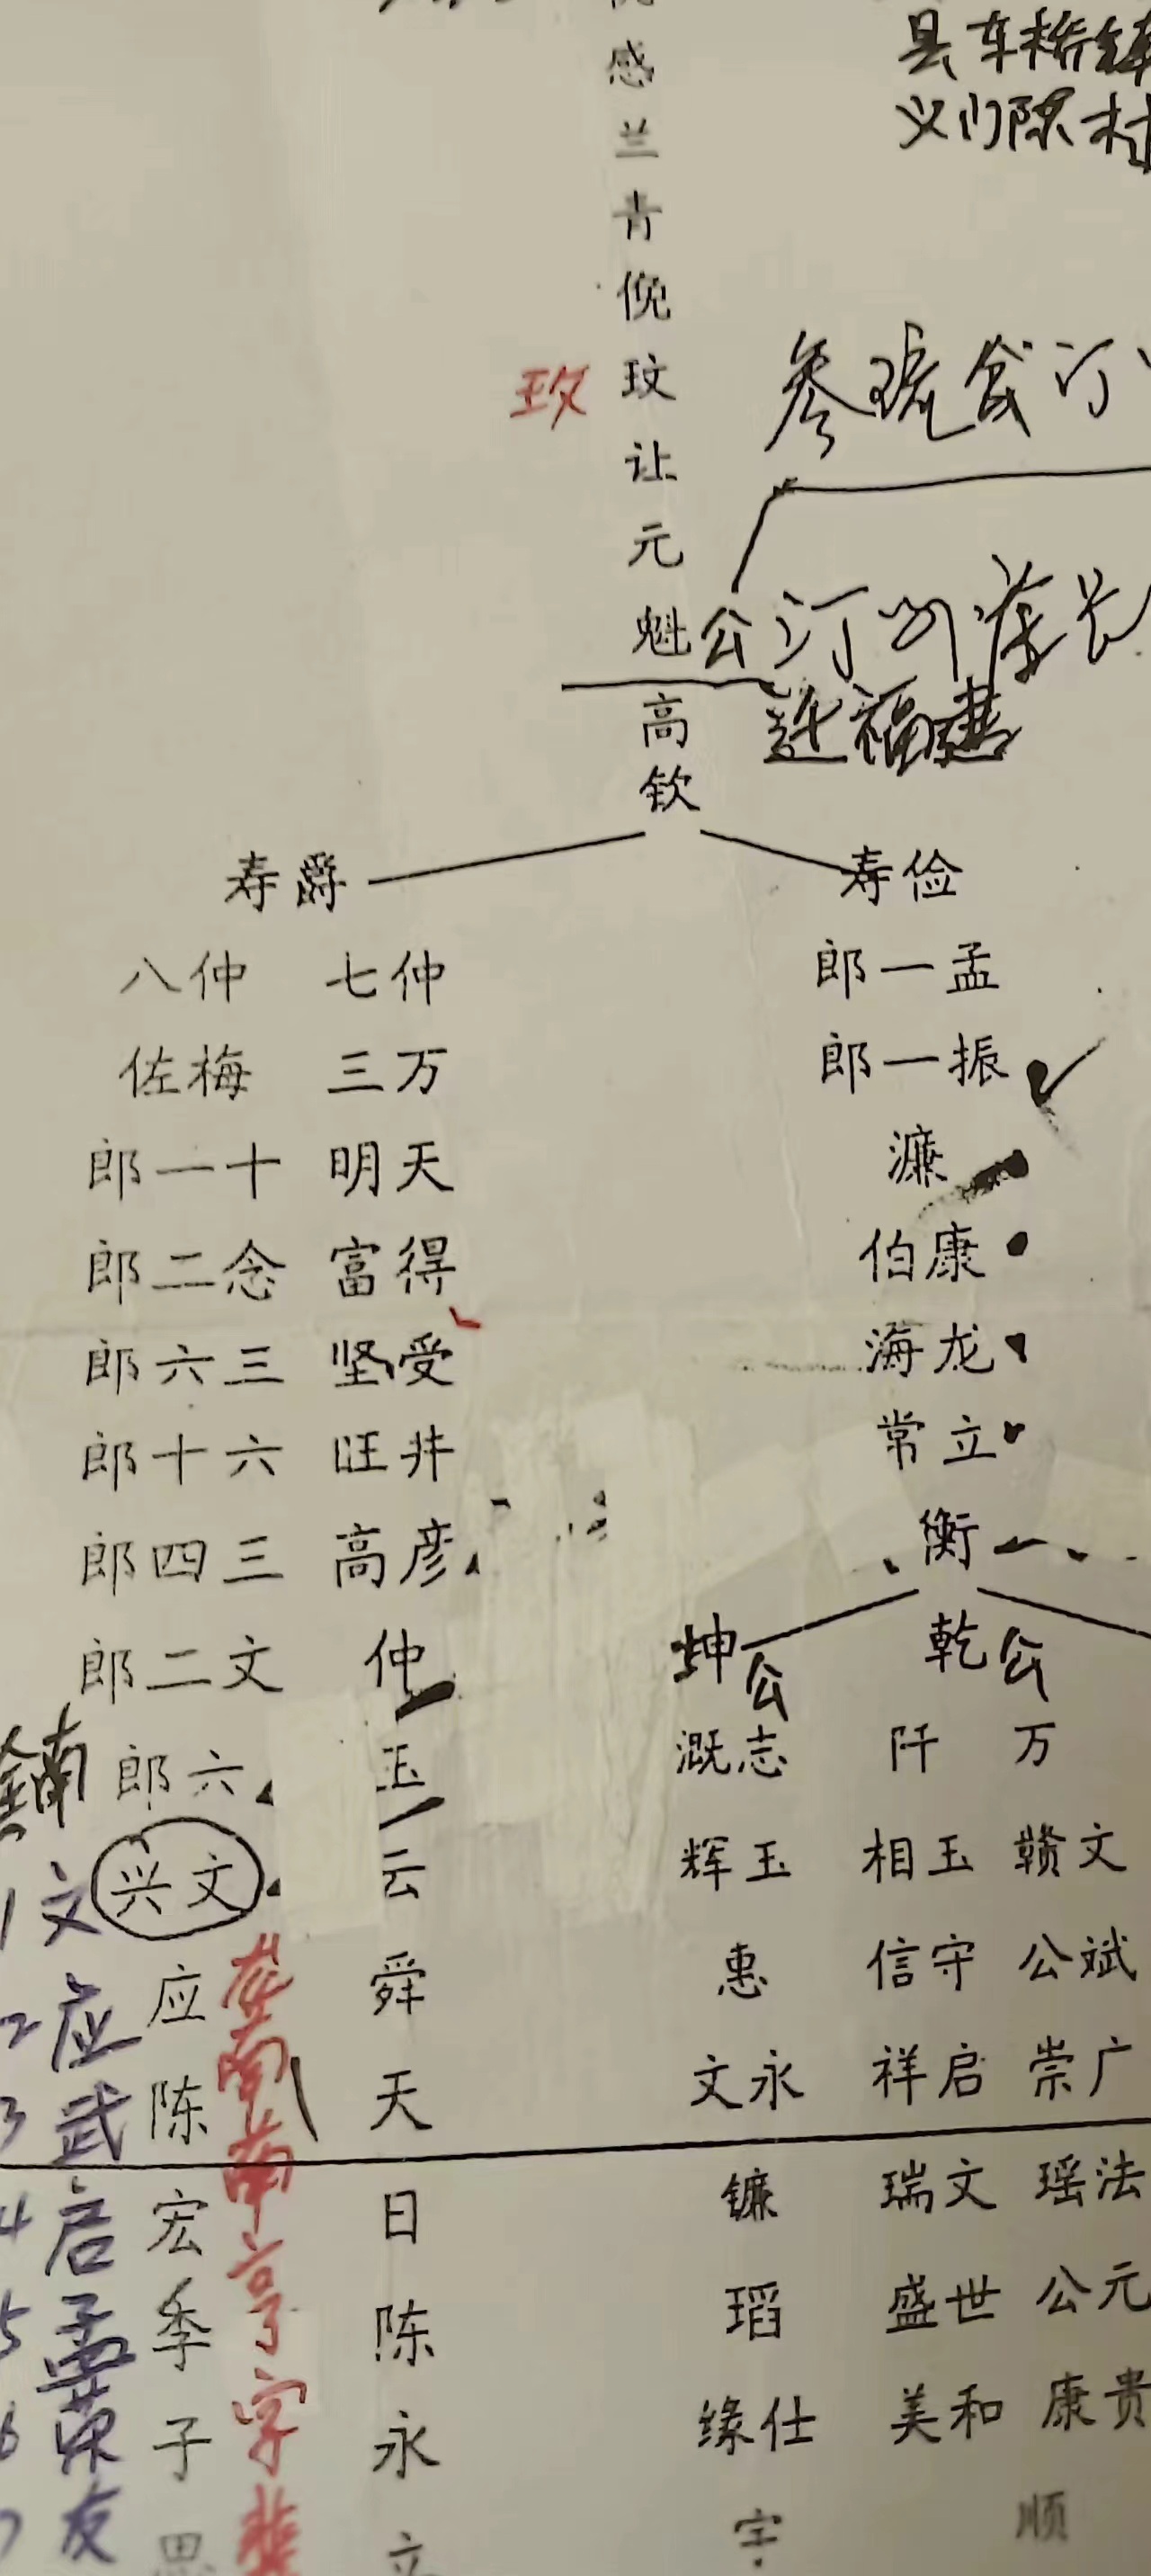 感
兰
青
俛
玟
让
元
魁公
高
钦
县车桥
义门陈村
玫
迁福建
寿爵
寿俭
八仲 七仲
郎一孟
佐梅 三万
郎一振
郎一十 明天
濂
郎二念 富得
伯康
郎六三 坚受
海龙
郎十六 旺井
常立
郎四三 高彦
衡
郎二文 仲
坤公 乾公
郎六 玉
溉志 阡 万
兴文 云
辉玉 相玉 赣文
应 舜
惠 信守 公斌
陈 天
文永 祥启 崇广
宏 日
镰 瑞文 瑶法
季 陈
瑫 盛世 公元
子 永
缘仕 美和 康贵
思 立
宇 顺
1 文
2 应
3 武
4 启
5 孟
6 荣
7 友
南
亨
字